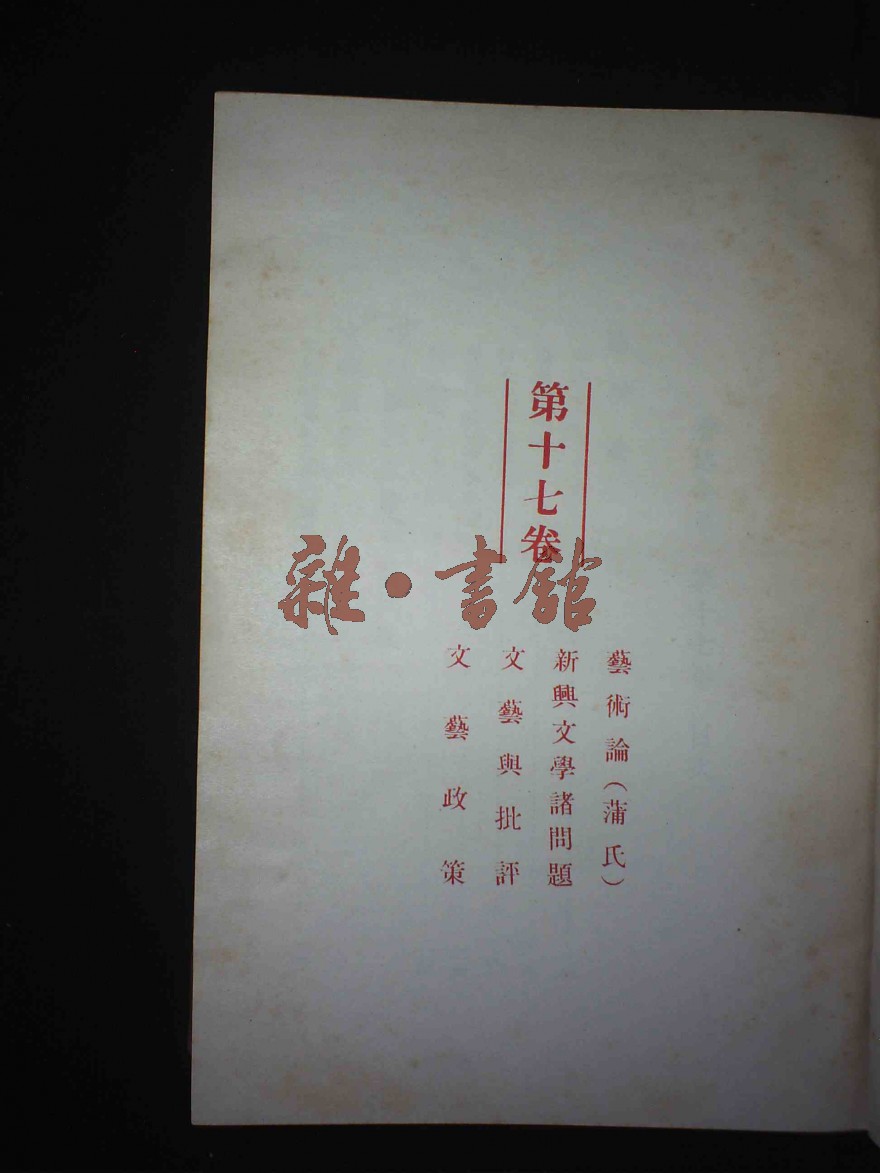 第十七卷
藝術論(蒲氏)
新興文學諸問題
文藝與批評
文藝政策
雜·書館